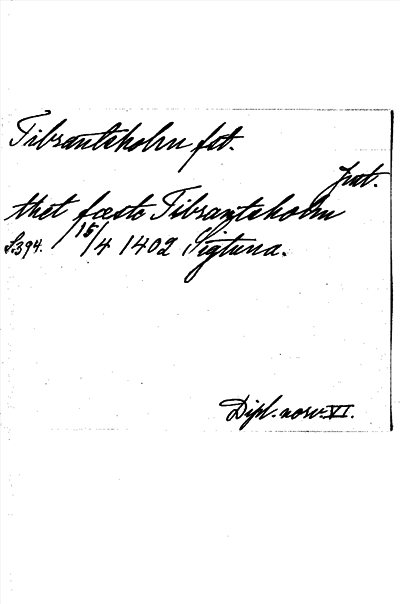 Tibrantsholm fst.
Jmt.
thet fæste Tibrantsholm
S.394. 15/4 1402 Sigtuna.
Dipl. norv. VI.